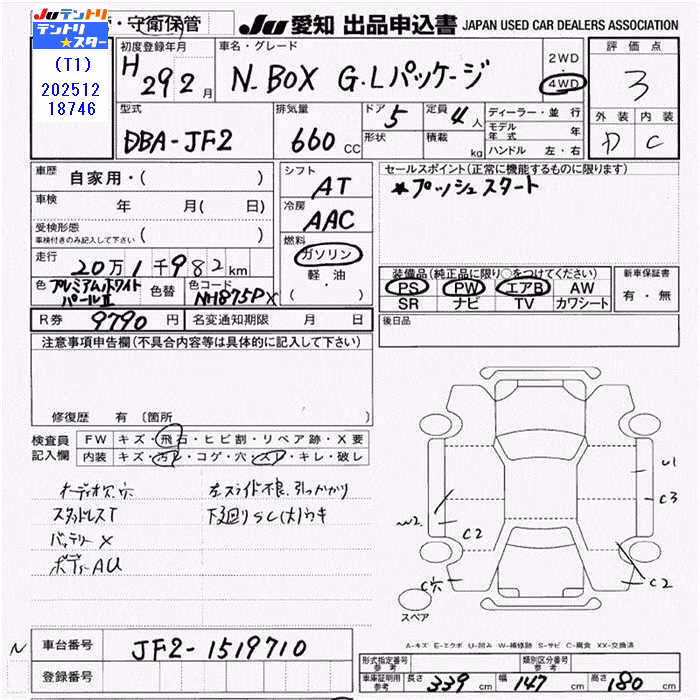 JUテントリ
テントリ★スター
(T1)
202512
18746
・守衛保管
JU 愛知 出品申込書 JAPAN USED CAR DEALERS ASSOCIATION
初度登録年月
H29 2月
車名・グレード
N-BOX G・Lパッケージ
2WD
4WD
評価点
3
外装 内装
D C
型式
DBA-JF2
排気量
660 CC
ドア 5
形状
定員 4人
積載 kg
ディーラー・並行
モデル年式 年
ハンドル 左・右
車歴
自家用・( )
車検 年 月( 日)
受検形態
車検付きのみ記入して下さい ( )
走行 20万1千982km
色 プレミアムホワイトパールII 色替 色コード NH875P×( )
R券 9790円 名変通知期限 月 日
シフト
AT
冷房
AAC
燃料
ガソリン
軽・油
セールスポイント(正常に機能するものに限ります)
★プッシュスタート
装備品(純正品に限り○をつけてください)
PS PW エアB AW
SR ナビ TV カワシート
新車保証書
有・無
後日品
注意事項申告欄(不具合内容等は具体的に記入して下さい)
修復歴 有〔箇所 〕
検査員記入欄
FW キズ・飛石・ヒビ割・リペア跡・X要
内装 キズ・汚レ・コゲ・穴・スレ・キレ・破レ
オーディオ欠穴
左スライド不良、引っかかり
スタッドレスT
下廻りSC(大)ウキ
バッテリーX
ボディーAU
U1
C3
W2
C2
C穴
C2
スペア
A-キズ E-エクボ U-凹み W-補修跡 S-サビ C-腐食 XX-交換済
N
車台番号 JF2-1519710
登録番号
形式指定番号 参考
類別区分番号 参考
車庫証明用 参考 長さ 339cm 幅 147cm 高さ 180cm